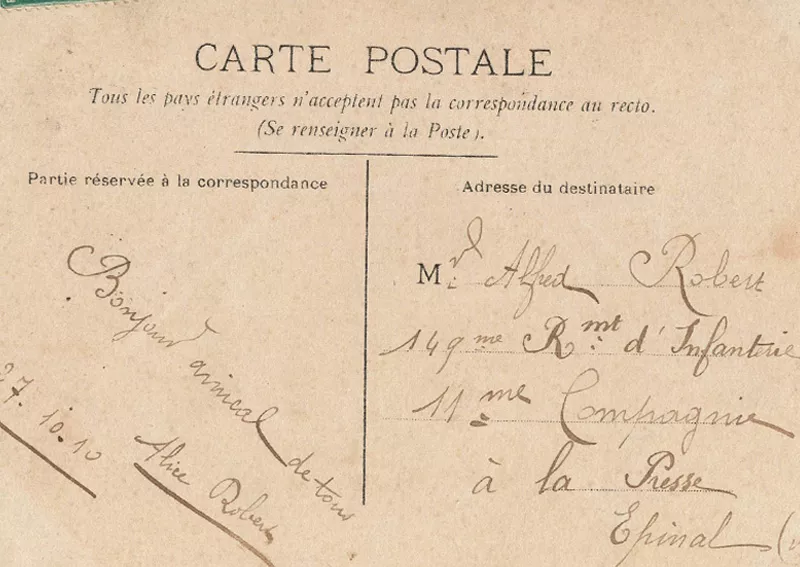 CARTE POSTALE
Tous les pays étrangers n'acceptent pas la correspondance au recto.
(Se renseigner à la Poste).
Partie réservée à la correspondance
Bonjour amical de tous
27.10.10
Alice Robert
Adresse du destinataire
Mr Alfred Robert
149me Rmt d'Infanterie
11me Compagnie
à la Presse
Epinal (